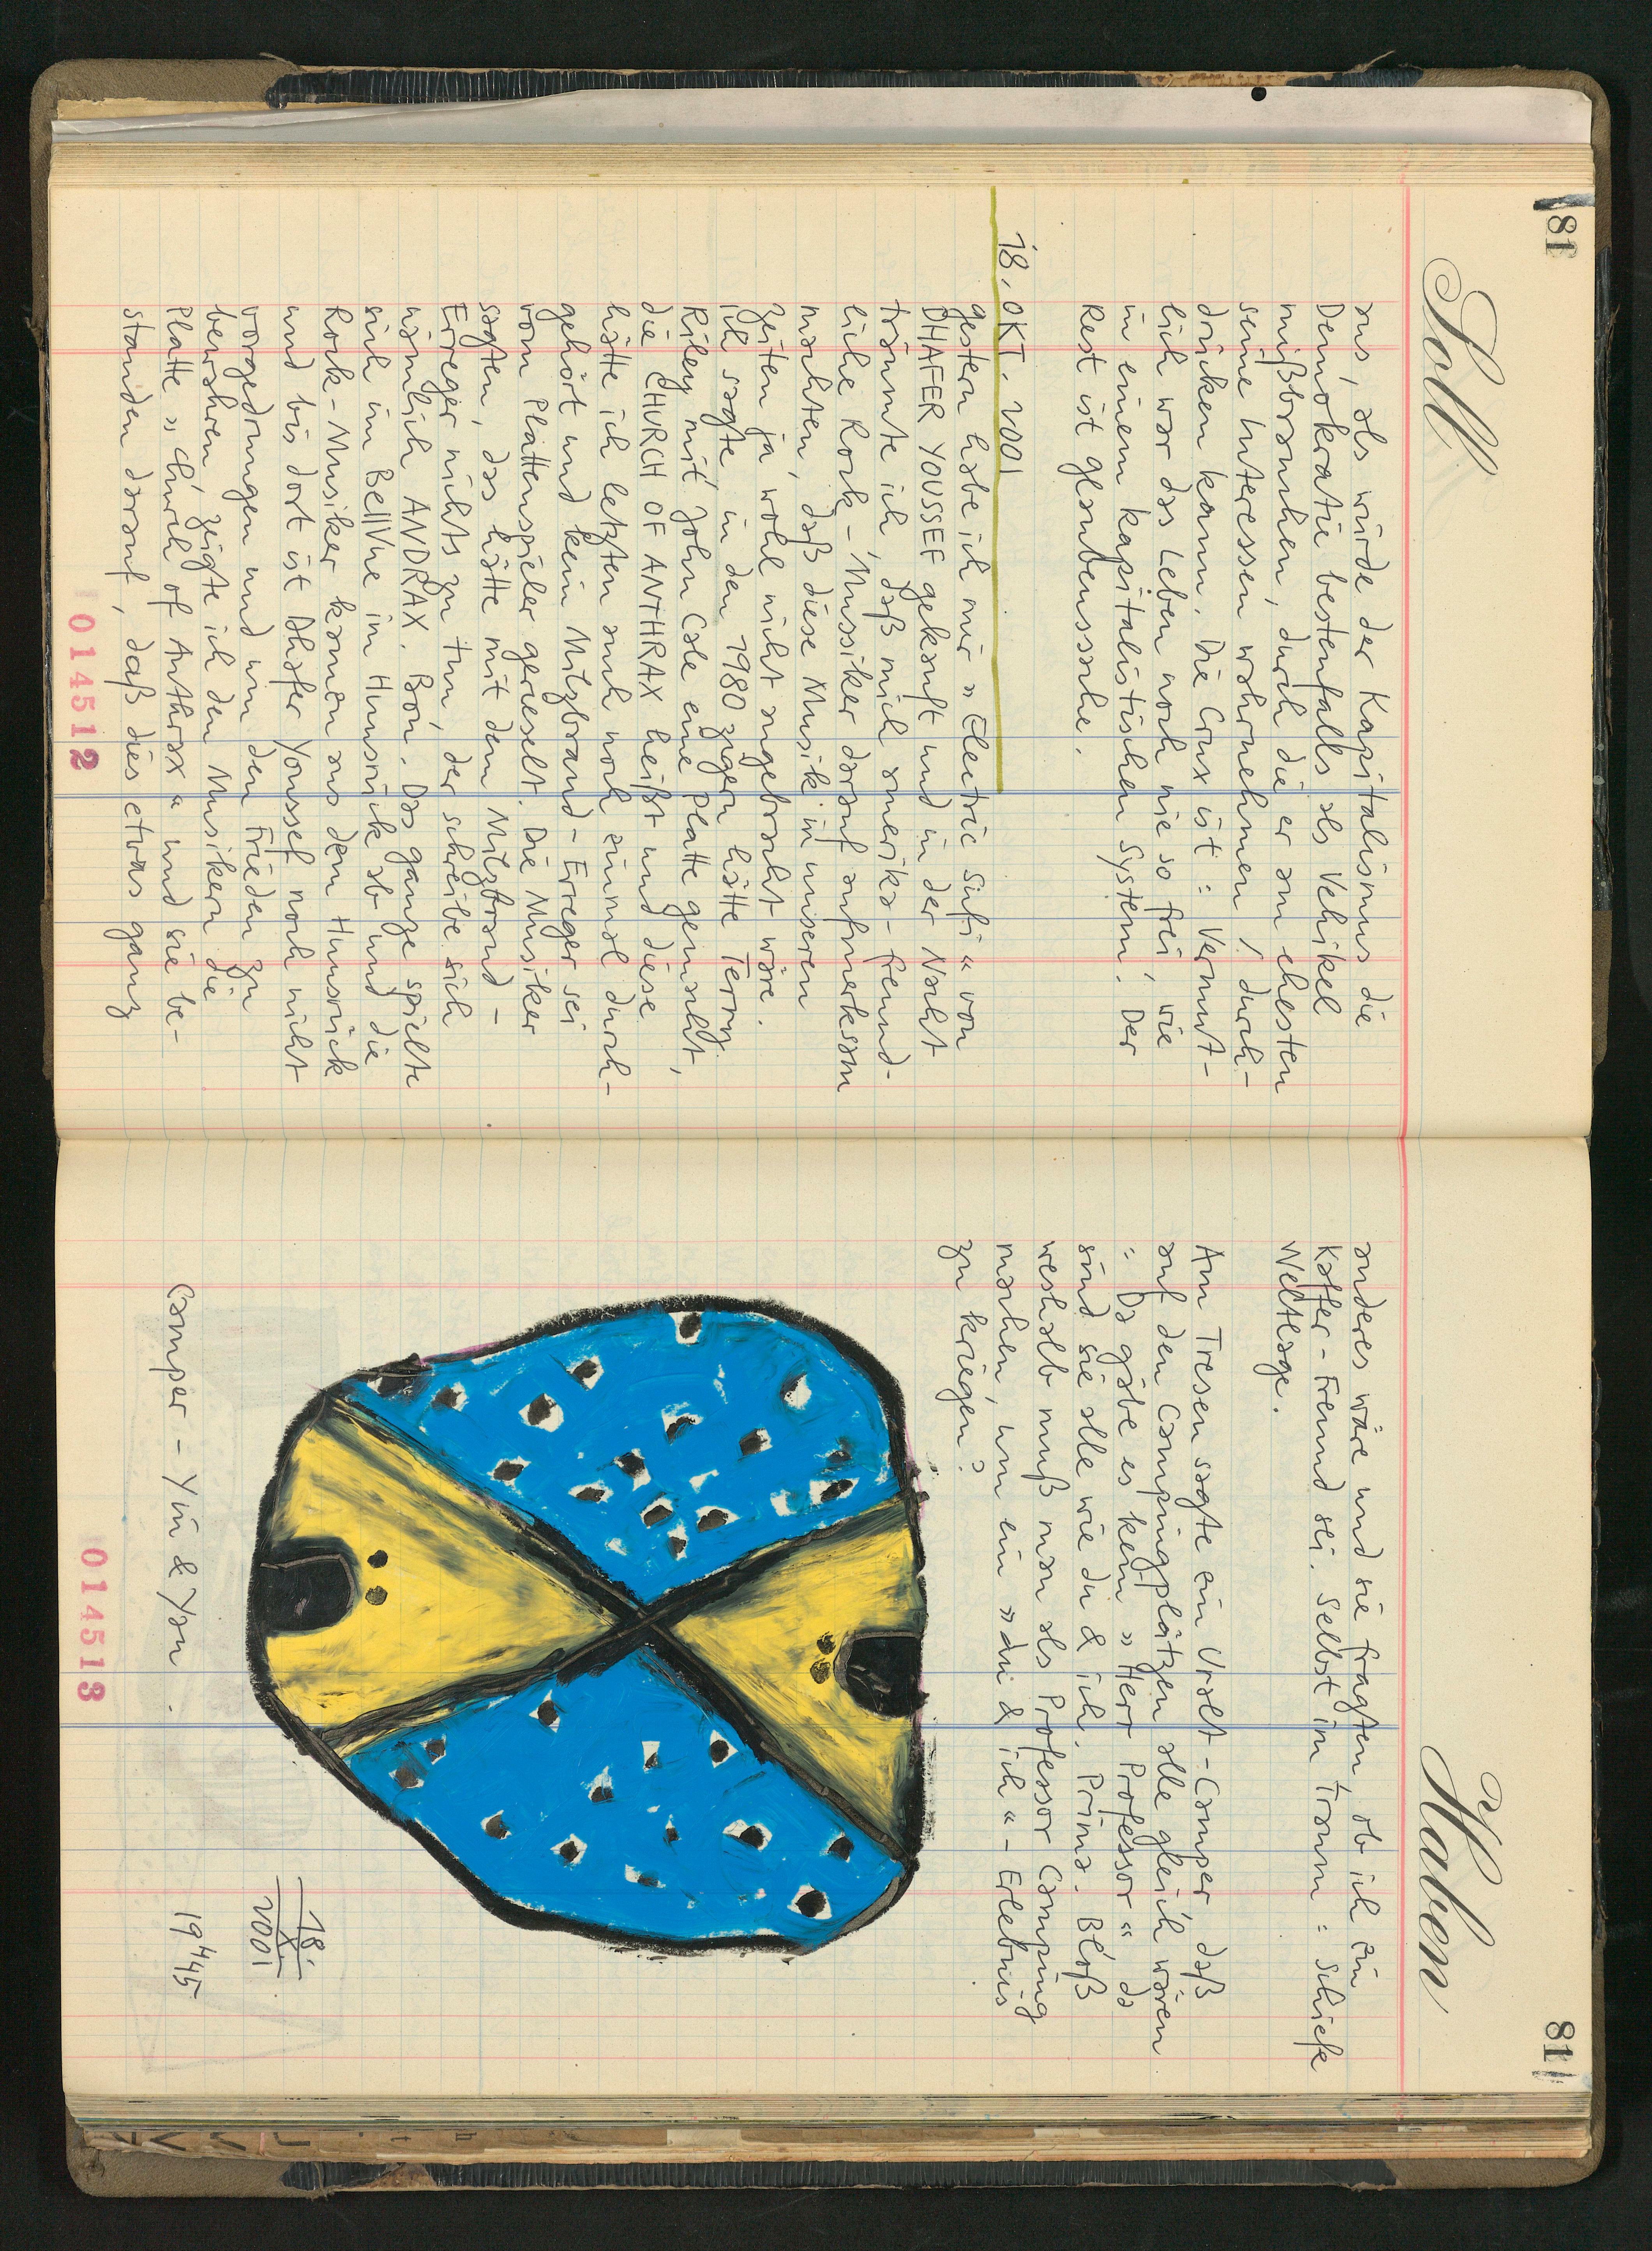 81
Soll
aus, als würde der Kapitalismus die
Demokratie bestenfalls als Vehikel
mißbrauchen, durch die er am ehesten
seine Interessen wahrnehmen / durch-
drücken kann. Die Crux ist: Vermut-
lich war das Leben noch nie so frei, wie
in einem kapitalistischen System. Der
Rest ist glaubenssache.
18. OKT. 2001
gestern habe ich mir » Electric Sufi « von
DHAFER YOUSSEF gekauft und in der Nacht
träumte ich, daß mich amerika-freund-
liche Rock-Mussiker darauf aufmerksam
machten, daß diese Musik in unseren
Zeiten ja wohl nicht angebracht wäre.
Ich sagte, in den 1980zigern hätte Terry
Riley mit John Cale eine Platte gemacht,
die CHURCH OF ANTHRAX heißt und diese
hätte ich letzten auch noch einmal durch-
gehört und kein Milzbrand-Erreger sei
vom Plattenspieler gerieselt. Die Musiker
sagten, das hätte mit dem Milzbrand-
Erreger nichts zu tun, der schreibe sich
nämlich ANDRAX. Bon. Das ganze spielte
sich im BellVue im Hunsrück ab und die
Rock-Musiker kamen aus dem Hunsrück
und bis dort ist Dhafer Youssef noch nicht
vorgedrungen und um den Frieden zu
bewahren, zeigte ich den Musikern die
Platte » Church of Anthrax « und sie be-
standen darauf, daß dies etwas ganz
014512
81
Haben
anderes wäre und sie fragten, ob ich ein
Kaffer-Freund sei. Selbst im Traum: schiefe
Weltlage.
Am Tresen sagte ein Uralt-Camper daß
auf den Campingplätzen alle gleich wären
: Da gäbe es kein » Herr Professor « da
sind sie alle wie du & ich. Prima. Bloß
weshalb muß man als Professor Camping
machen, um ein » du & ich « - Erlebnis
zu kriegen?
Camper - Yin & Yan.
18.
X.
2001
19 445
014513